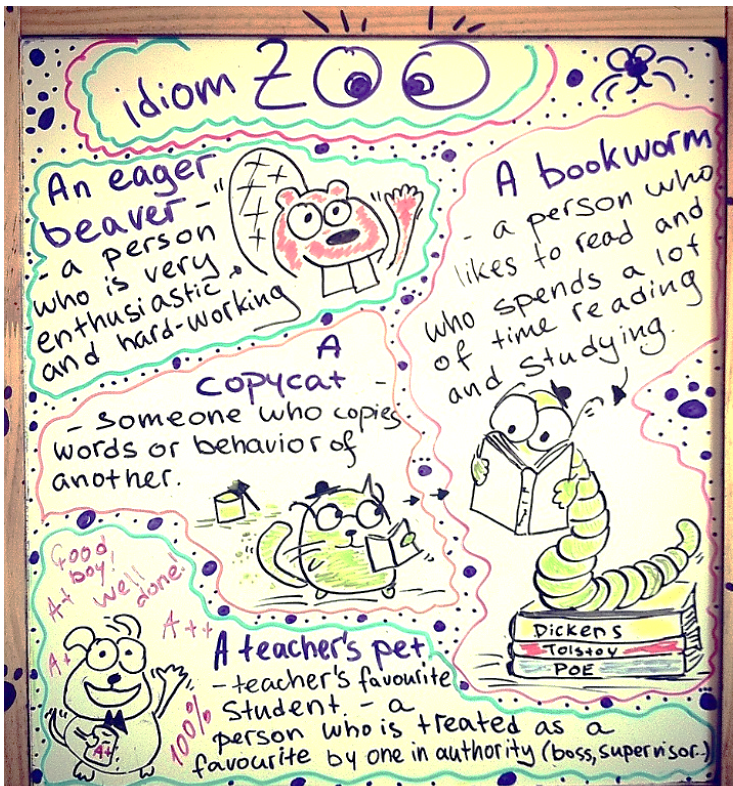 idiom ZOO
An eager
beaver -
- a person
who is very
enthusiastic
and hard-working
A bookworm
- a person who
likes to read and
who spends a lot
of time reading
and studying.
A
copycat -
- someone who copies
words or behavior of
another.
Dickens
Tolstoy
POE
Good
boy!
A+
well
done!
A++
A+
A+
100%
A teacher's pet
- teacher's favourite
student - a
person who is treated as a
favourite by one in authority (boss, supervisor..)